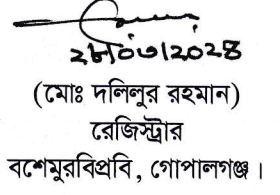 ২৮।০৩।২০২৪
(মোঃ দলিলুর রহমান)
রেজিস্ট্রার
বশেমুরবিপ্রবি, গোপালগঞ্জ।